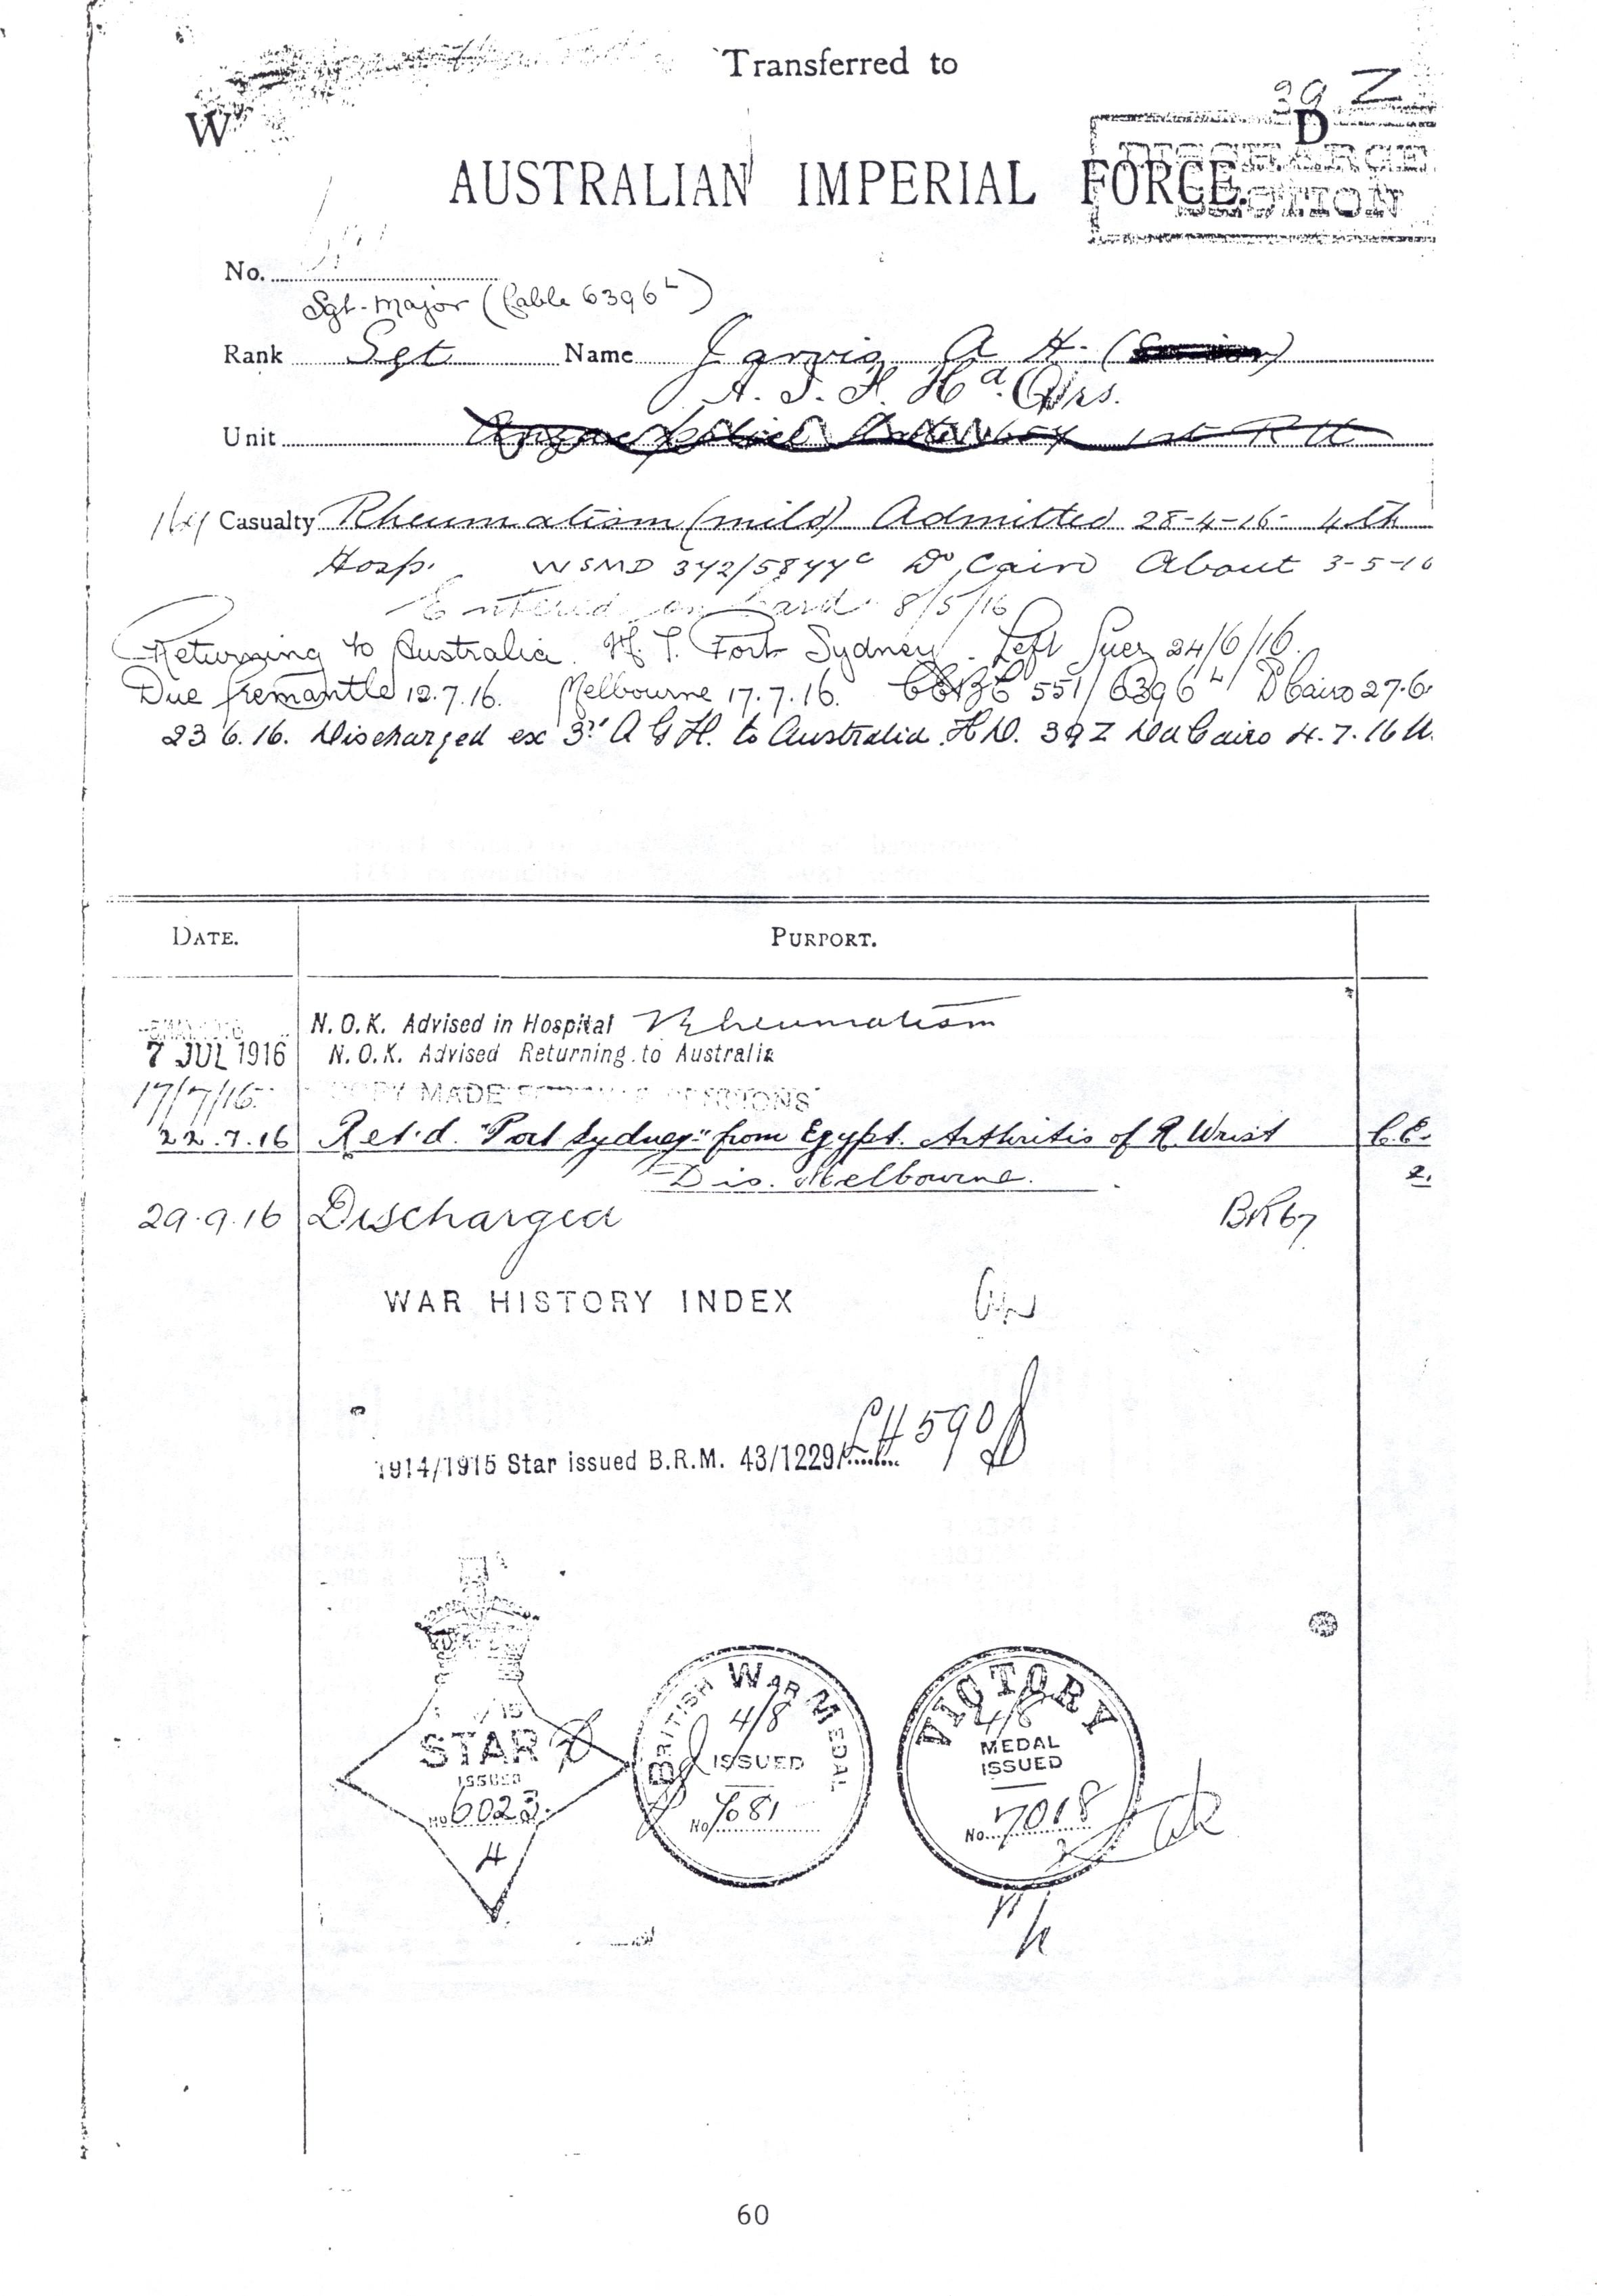 Transferred to
W
39 Z
D
DISCHARGE
SECTION
AUSTRALIAN IMPERIAL FORCE.
No.
Sgt-Major (Cable 6396 L)
Rank Sgt Name Jarvis A H.
A. I. F. Hd. Qrs.
Unit
Casualty Rheumatism (mild) Admitted 28-4-16- 4th
Hosp. WSMD 342/5844c Do Cairo About 3-5-16
Entered on Card 8/5/16
Returning to Australia. H. T. Port Sydney. Left Suez 24/6/16.
Due Fremantle 12.7.16. Melbourne 17.7.16. 551/6396 L Cairo 27.6.
23 6.16. Discharged ex 3rd A G H. to Australia. H D. 39 Z Cairo 4.7.16
DATE. PURPORT.
N. O. K. Advised in Hospital Rheumatism
7 JUL 1916 N. O. K. Advised Returning to Australia
17/7/16 COPY MADE
22.7.16 Ret'd. "Port Sydney" from Egypt. Arthritis of R Wrist C.E.
Dis. Melbourne. 2.
29.9.16 Discharged BR67
WAR HISTORY INDEX
1914/1915 Star issued B.R.M. 43/1229/ 590
/15
STAR
ISSUED
No 6023
4
BRITISH WAR MEDAL
4/8
ISSUED
No 7081
VICTORY
4/8
MEDAL
ISSUED
No. 7018
60